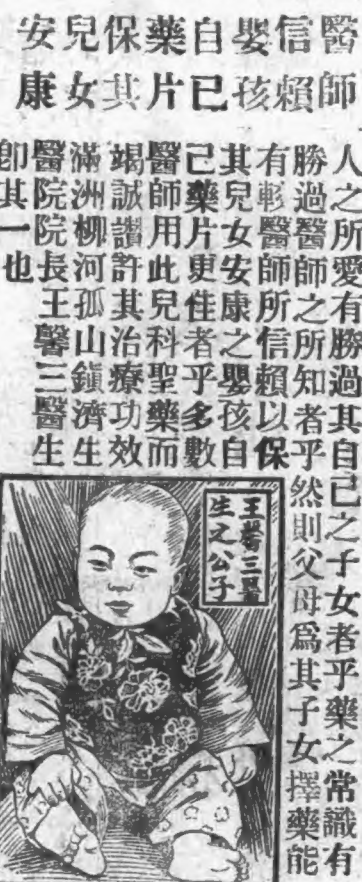 醫師
信賴
嬰孩
自已
藥片
保其
兒女
安康
人之所愛有勝過其自己之子女者乎藥之常識有
勝過醫師之所知者乎然則父母爲其子女擇藥能
有較醫師所信賴以保
其兒女安康之嬰孩自
己藥片更佳者乎多數
醫師用此兒科聖藥而
竭誠讚許其治療功效
滿洲柳河孤山鎭濟生
醫院院長王馨三醫生
卽其一也
王馨三醫
生之公子